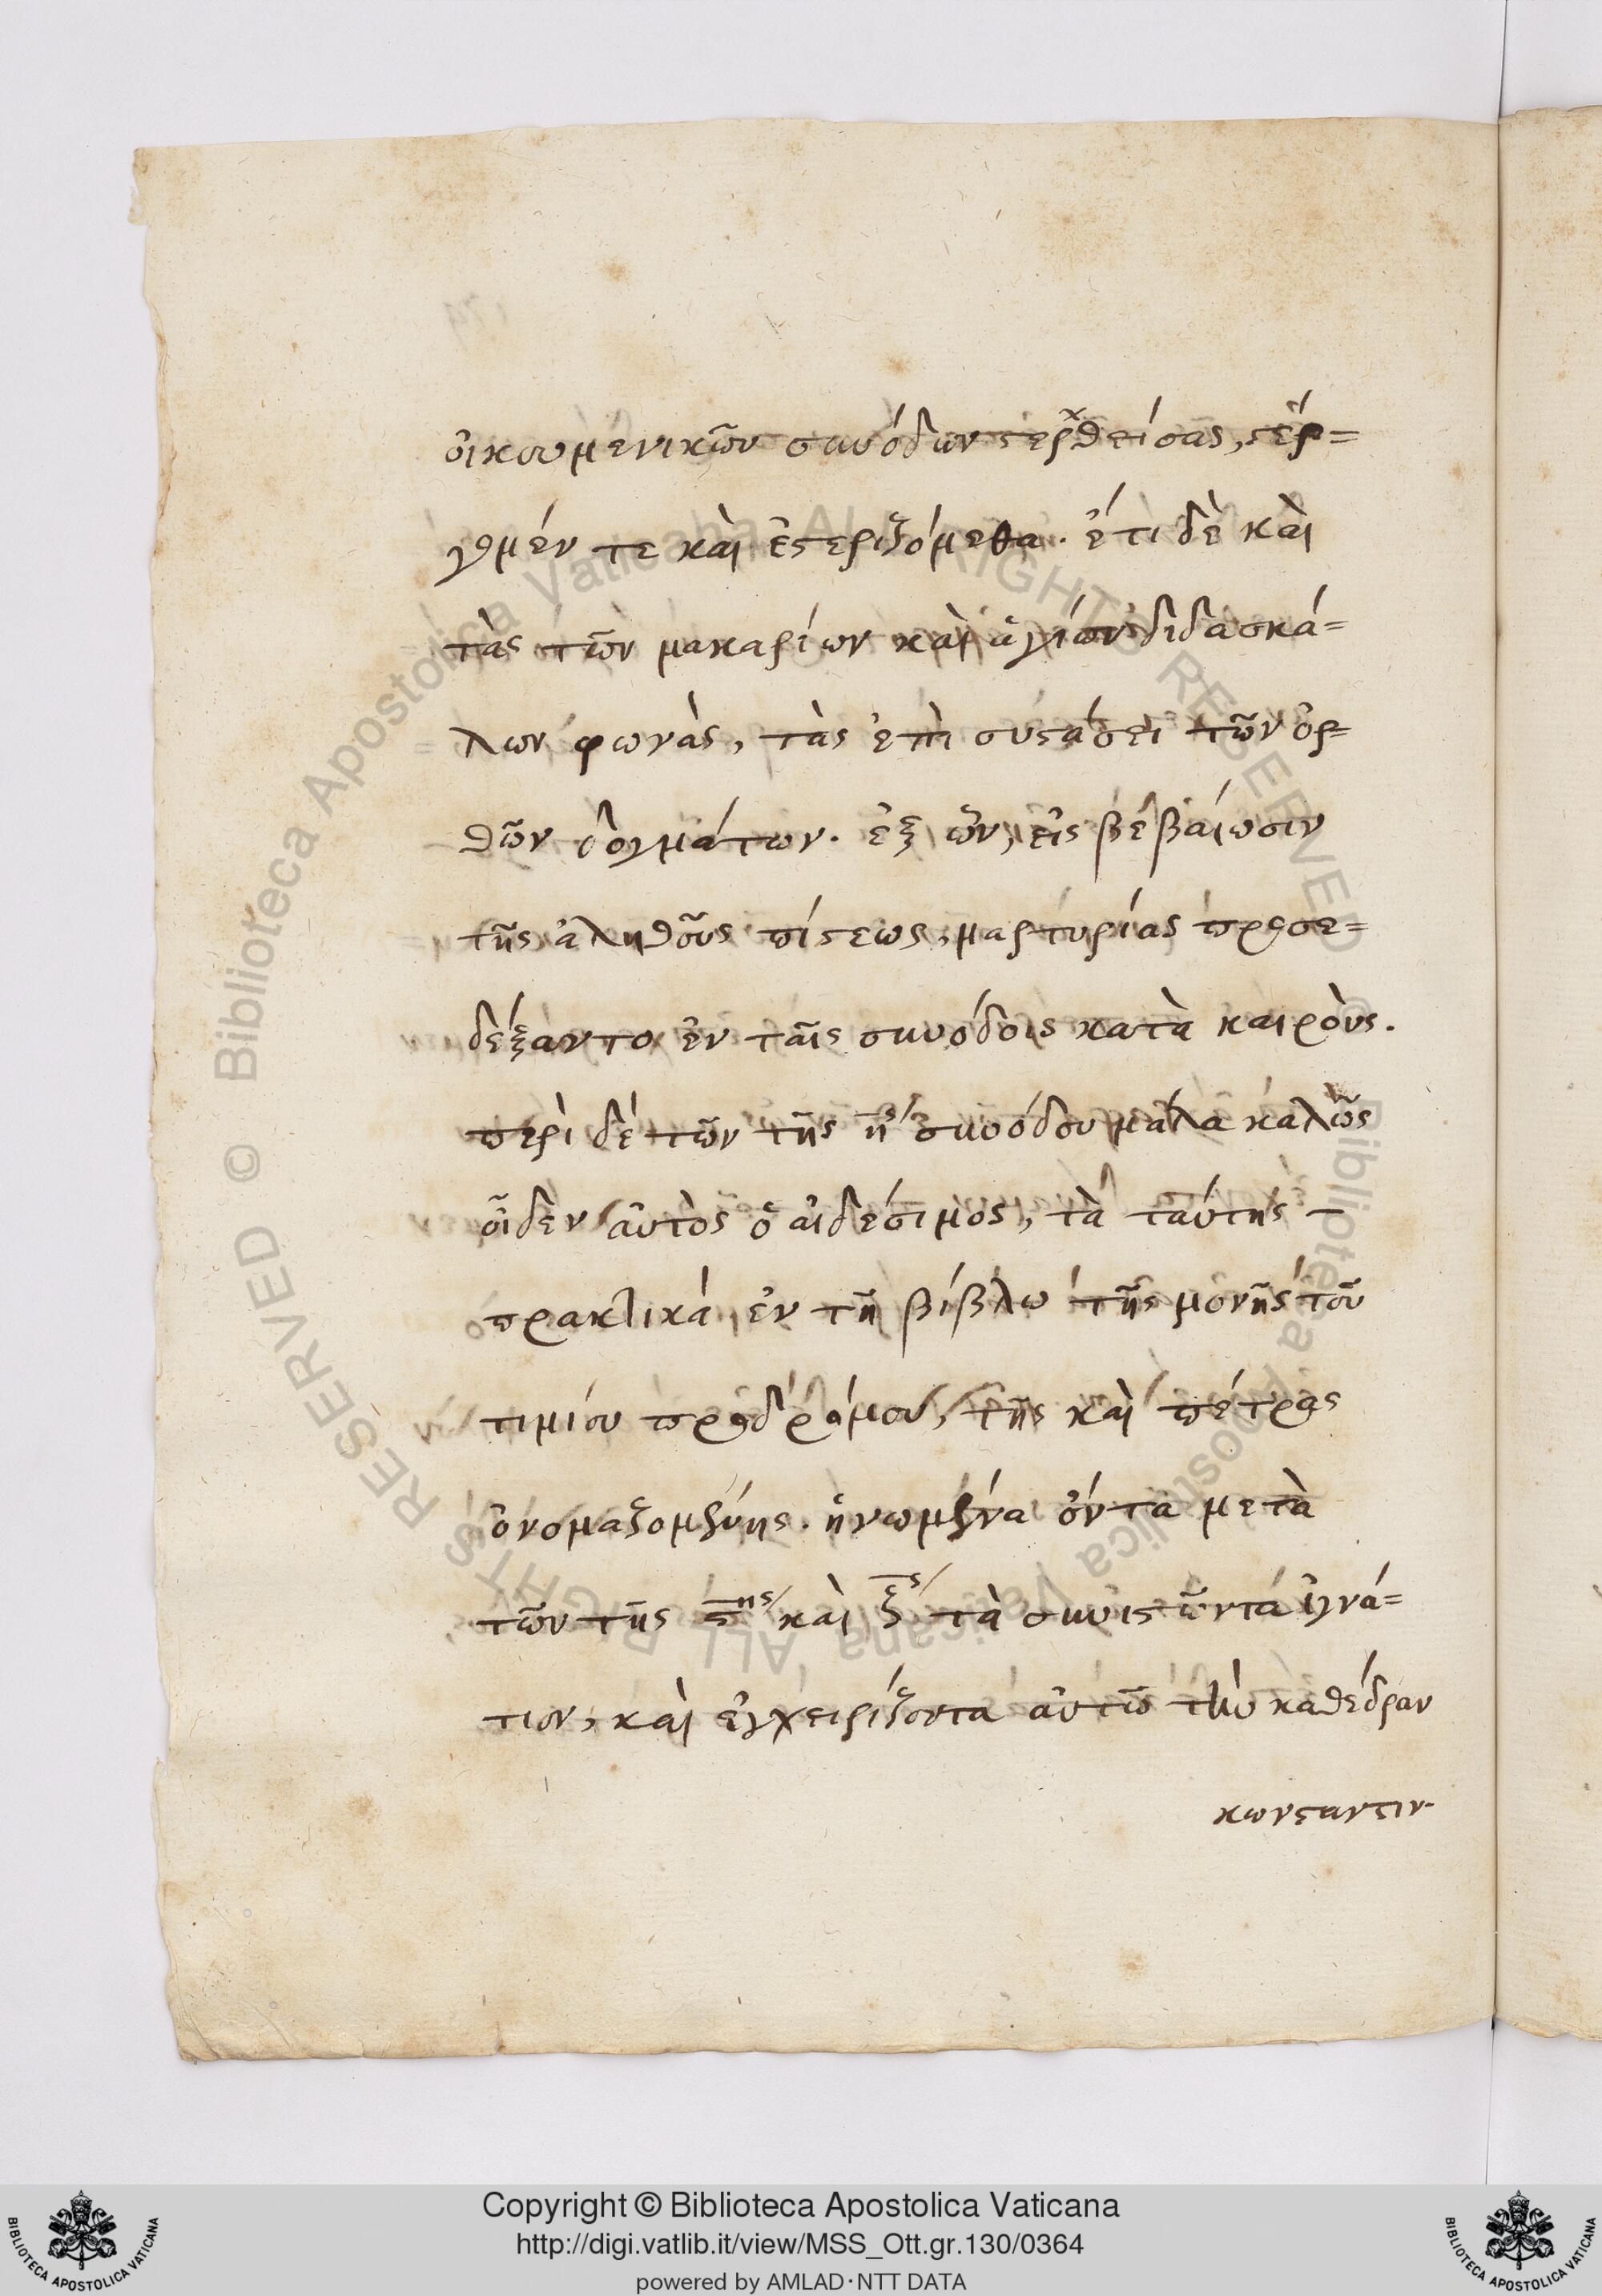 οἰκουμενικῶν συνόδων στερχθείσας, στέρ=
γομέν τε καὶ ἐστεριζόμεθα. ἔτι δὲ καὶ
τὰς τῶν μακαρίων καὶ ἁγίων διδασκά=
λων φωνὰς, τὰς ἐπὶ συστάσει τῶν ὀρ=
θῶν δογμάτων. ἐξ ὧν, εἰς βεβαίωσιν
τῆς ἀληθοῦς πίστεως, μαρτυρίας προσε=
δέξαντο ἐν ταῖς συνόδοις κατὰ καιροὺς.
περὶ δὲ τῶν τῆς η΄ συνόδου μάλα καλῶς
οἶδεν αὐτὸς ὁ αἰδέσιμος, τὰ ταύτης
πρακτικὰ ἐν τῆ βίβλω τῆς μονῆς τοῦ
τιμίου προδρόμου, τῆς καὶ πέτρας
ὀνομαζομένης. ἡνωμένα ὄντα μετὰ
τῶν τῆς ϛης καὶ ζς τὰ συνιστῶντα ἰγνά=
τιον, καὶ ἐγχειρίζοντα αὐτῶ τὴν καθέδραν
κωνσταντιν.
Copyright © Biblioteca Apostolica Vaticana
http://digi.vatlib.it/view/MSS_Ott.gr.130/0364
powered by AMLAD·NTT DATA
BIBLIOTECA APOSTOLICA VATICANA
BIBLIOTECA APOSTOLICA VATICANA
© Biblioteca Apostolica Vaticana ALL RIGHTS RESERVED
© Biblioteca Apostolica Vaticana ALL RIGHTS RESERVED